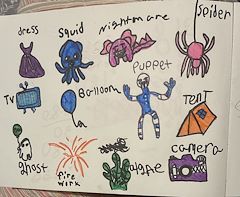 dress
squid
nightmare
spider
TV
Balloon
puppet
TENT
ghost
fire
work
algae
camera